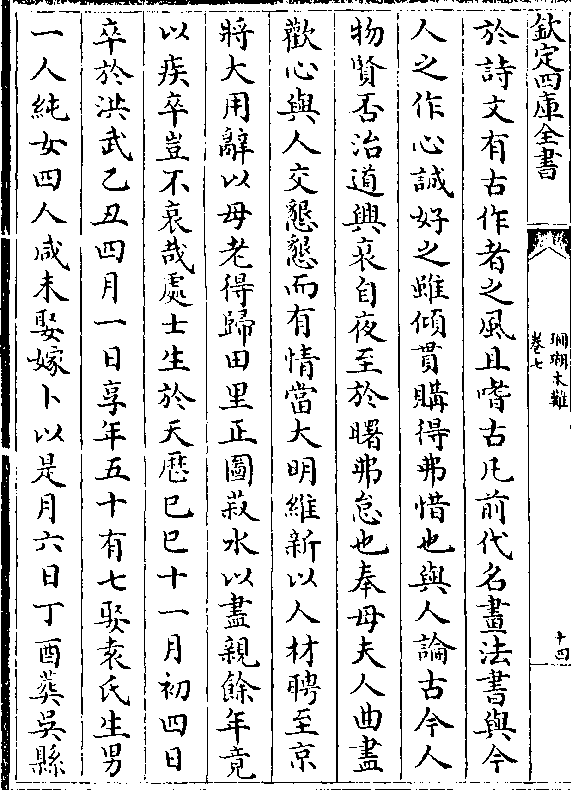 欽定四庫全書
珊瑚木難
卷七
十四
於詩文有古作者之風且嗜古凡前代名畫法書與今
人之作心誠好之雖傾貫購得弗惜也與人論古今人
物賢否治道興衰自夜至於曙弗怠也奉母夫人曲盡
歡心與人交懇懇而有情當大明維新以人材聘至京
將大用辭以母老得歸田里正圖菽水以盡親餘年竟
以疾卒豈不哀哉處士生於天歷己巳十一月初四日
卒於洪武乙丑四月一日享年五十有七娶袁氏生男
一人純女四人咸未娶嫁卜以是月六日丁酉葬吳縣